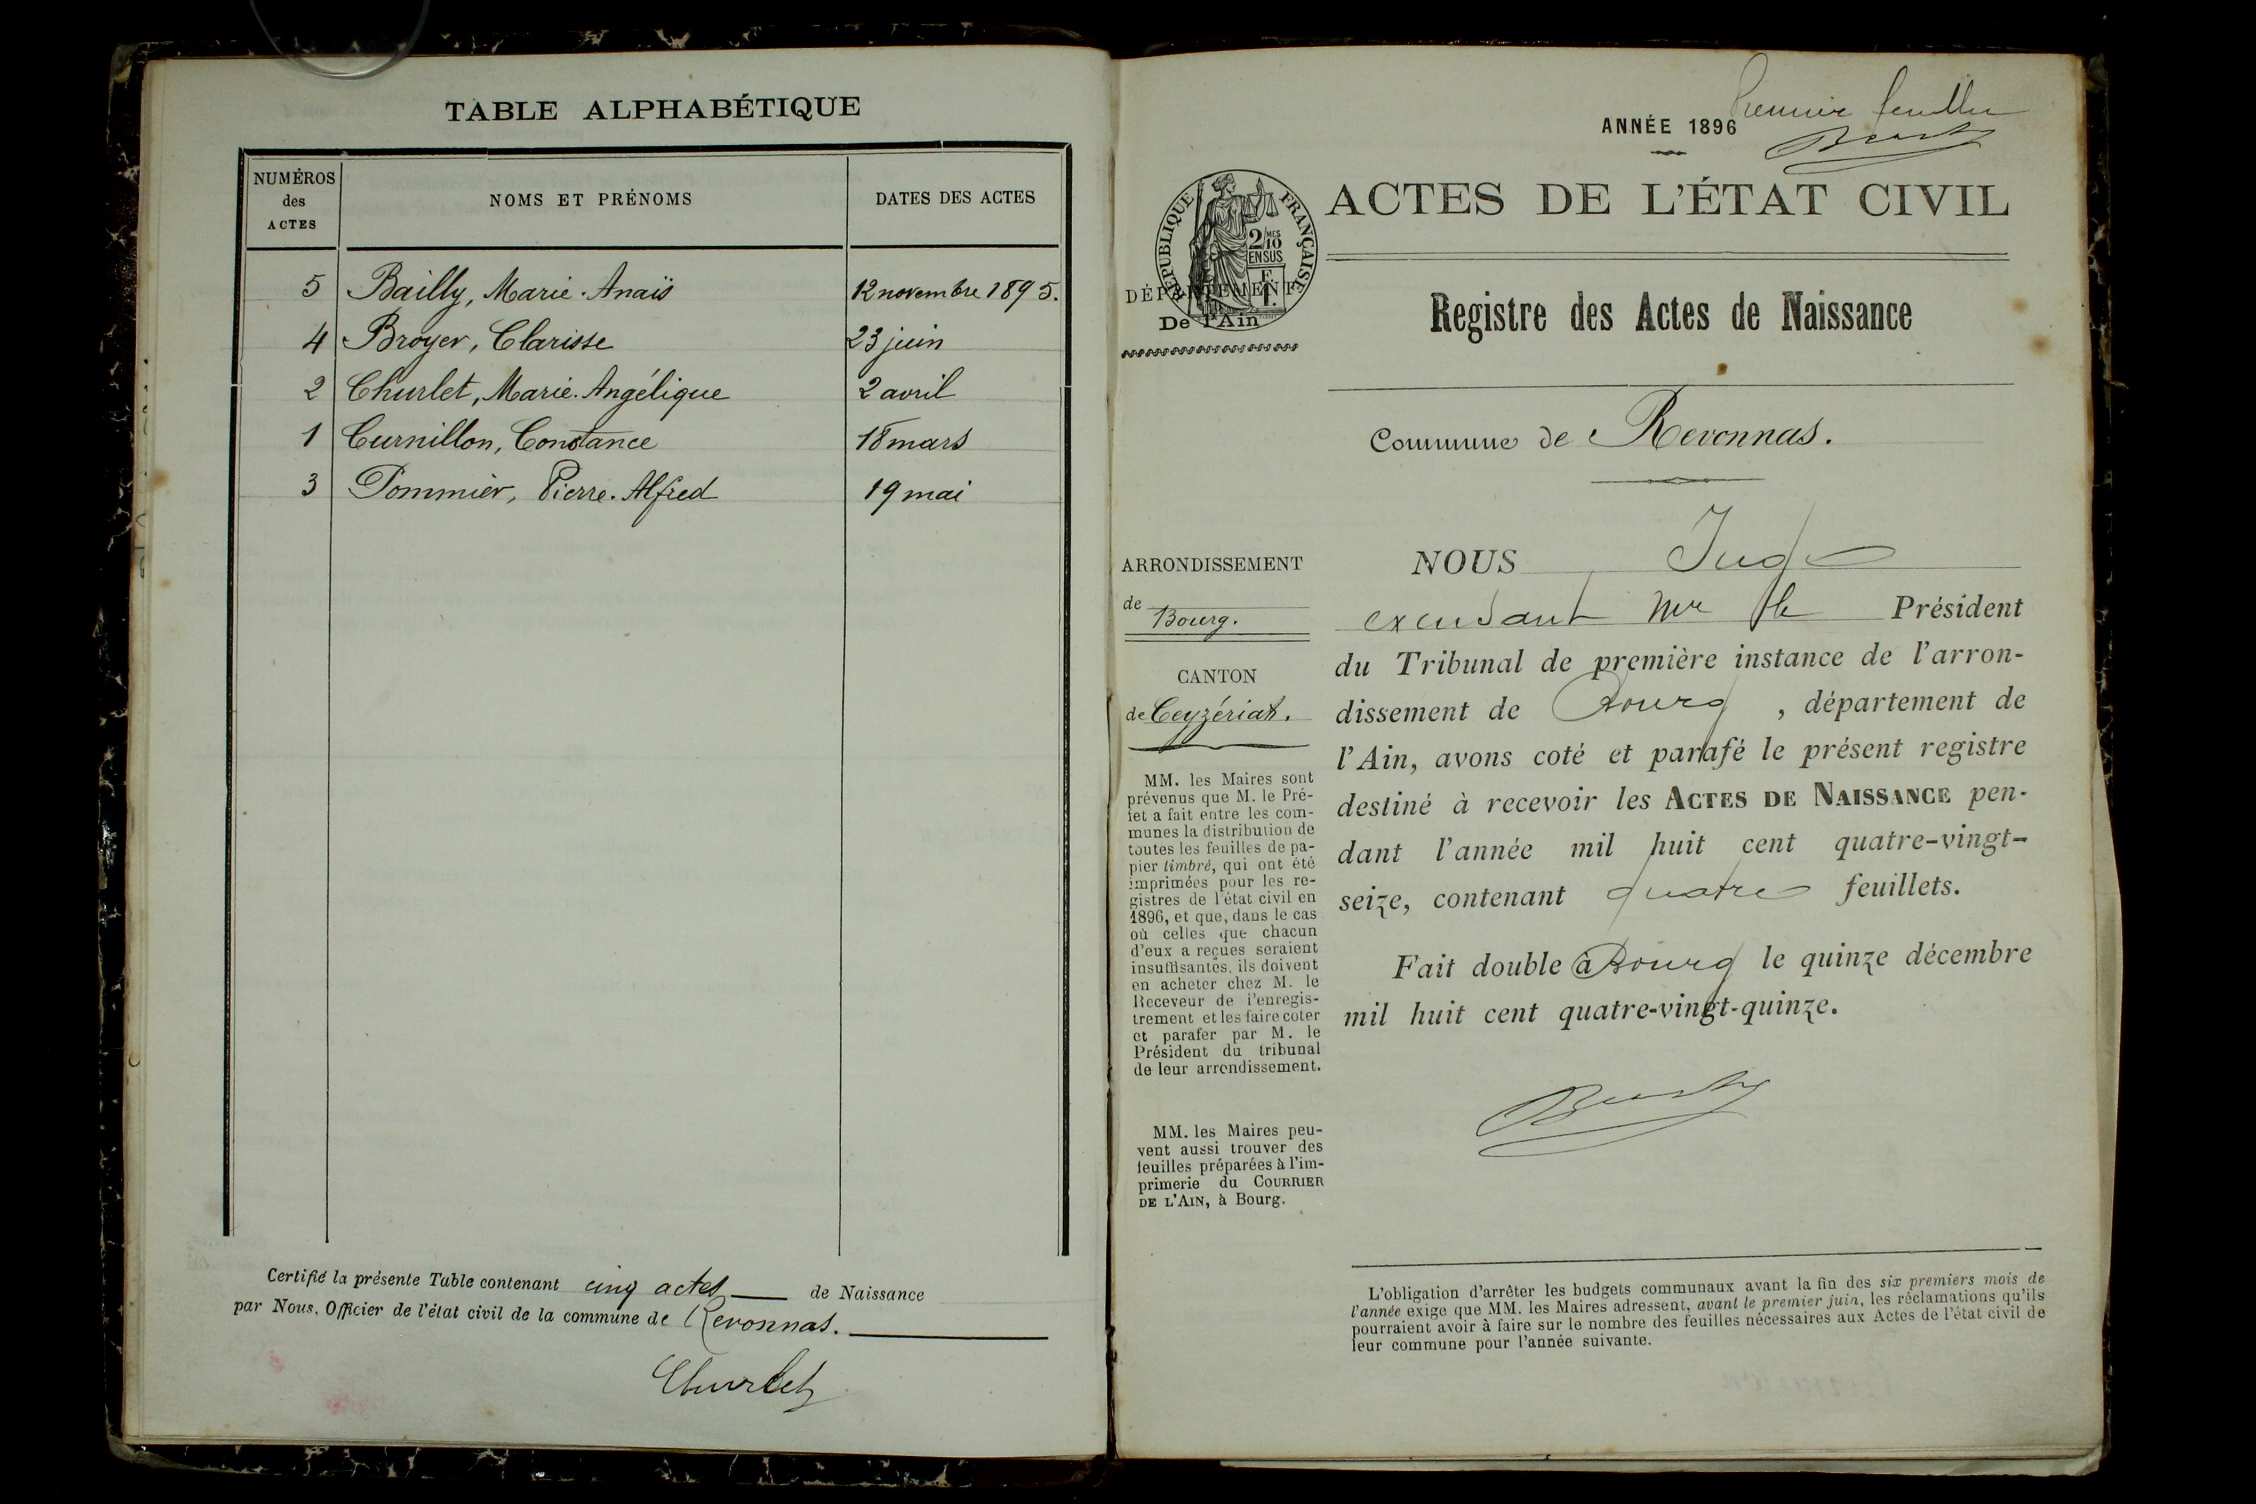 TABLE ALPHABÉTIQUE
NUMÉROS des ACTES
NOMS ET PRÉNOMS
DATES DES ACTES
5 Bailly, Marie-Anaïs 12 novembre 1895.
4 Broyer, Clarisse 23 juin
2 Churlet, Marie-Angélique 2 avril
1 Curnillon, Constance 18 mars
3 Pommier, Pierre-Alfred 19 mai
Certifié la présente Table contenant cinq actes de Naissance
par Nous, Officier de l'état civil de la commune de Revonnas.
Churlet
Premier feuillet
ANNÉE 1896
ACTES DE L'ÉTAT CIVIL
RÉPUBLIQUE FRANÇAISE
2/10 MES
EN SUS
DÉPARTEMENT
De l'Ain
Registre des Actes de Naissance
Commune de Revonnas.
ARRONDISSEMENT
de Bourg.
CANTON
de Ceyzériat.
MM. les Maires sont
prévenus que M. le Pré-
fet a fait entre les com-
munes la distribution de
toutes les feuilles de pa-
pier timbré, qui ont été
imprimées pour les re-
gistres de l'état civil en
1896, et que, dans le cas
où celles que chacun
d'eux a reçues seraient
insuffisantes, ils doivent
en acheter chez M. le
Receveur de l'enregis-
trement et les faire coter
et parafer par M. le
Président du tribunal
de leur arrondissement.
MM. les Maires peu-
vent aussi trouver des
feuilles préparées à l'im-
primerie du COURRIER
DE L'AIN, à Bourg.
NOUS Juge
Mr le Président
du Tribunal de première instance de l'arron-
dissement de Bourg, département de
l'Ain, avons coté et parafé le présent registre
destiné à recevoir les ACTES DE NAISSANCE pen-
dant l'année mil huit cent quatre-vingt-
seize, contenant quatre feuillets.
Fait double à Bourg le quinze décembre
mil huit cent quatre-vingt-quinze.
L'obligation d'arrêter les budgets communaux avant la fin des six premiers mois de
l'année exige que MM. les Maires adressent, avant le premier juin, les réclamations qu'ils
pourraient avoir à faire sur le nombre des feuilles nécessaires aux Actes de l'état civil de
leur commune pour l'année suivante.